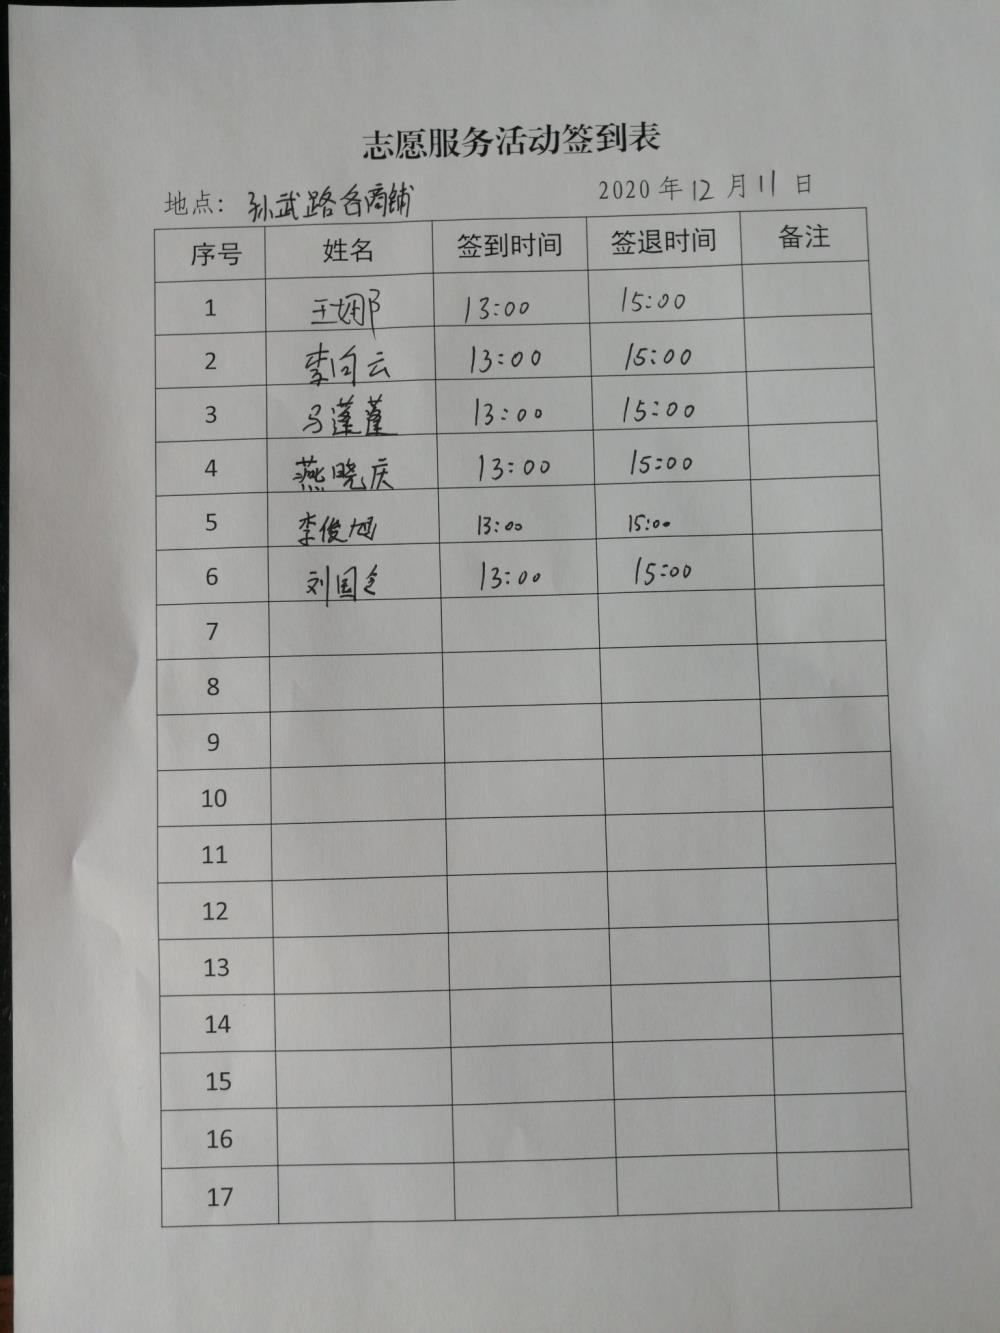 志愿服务活动签到表
地点：孙武路各商铺 2020年12月11日
序号 姓名 签到时间 签退时间 备注
1 王娜 13:00 15:00
2 李向云 13:00 15:00
3 马蓬蓬 13:00 15:00
4 燕晓庆 13:00 15:00
5 李俊旭 13:00 15:00
6 刘国 13:00 15:00
7
8
9
10
11
12
13
14
15
16
17